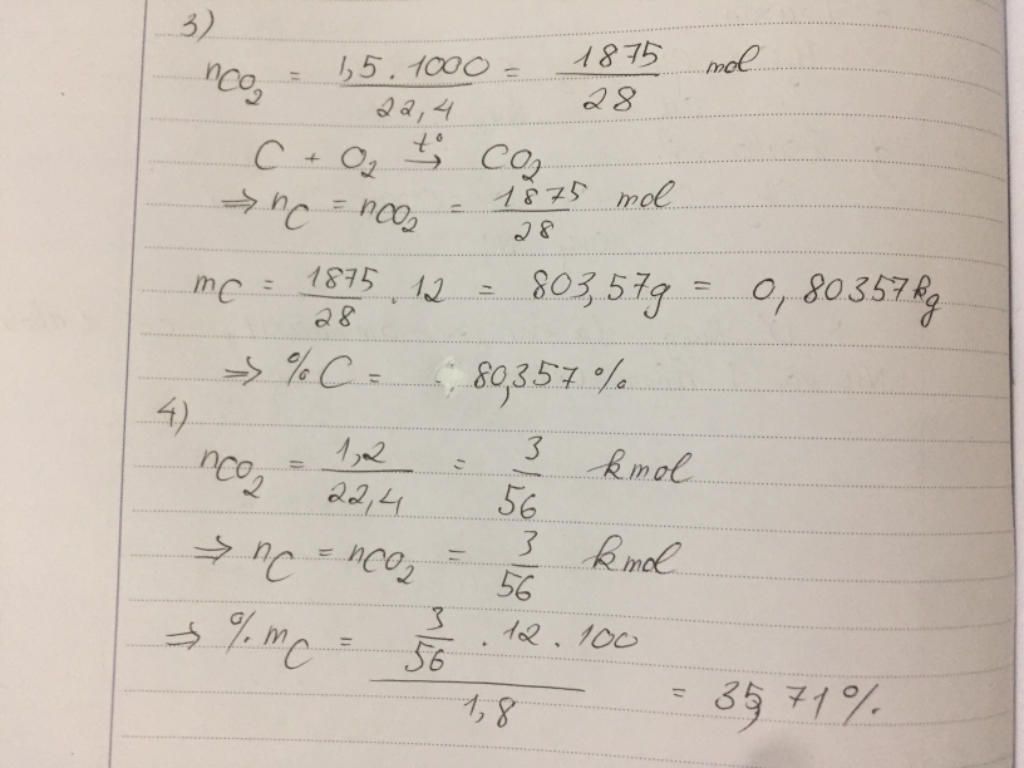 3)
nCO₂ = 1,5.1000/22,4 = 1875/28 mol
C + O₂ →t° CO₂
⇒ nC = nCO₂ = 1875/28 mol
mC = 1875/28 . 12 = 803,57g = 0,80357kg
⇒ %C = 80,357%
4)
nCO₂ = 1,2/22,4 = 3/56 kmol
⇒ nC = nCO₂ = 3/56 kmol
⇒ %mC = 3/56 . 12 . 100/1,8 = 35,71%